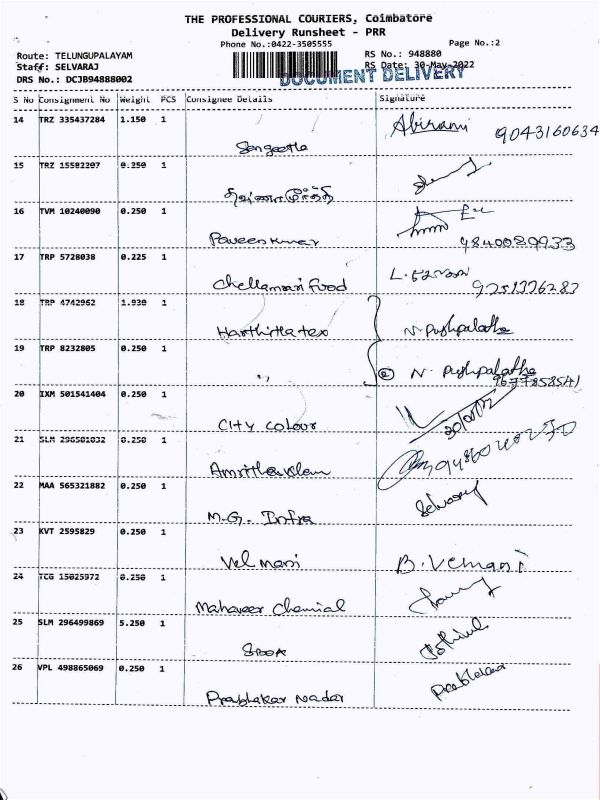 THE PROFESSIONAL COURIERS, Coimbatore
Delivery Runsheet - PRR
Phone No.:0422-3505555 Page No.:2
Route: TELUNGUPALAYAM RS No.: 948880
Staff: SELVARAJ RS Date: 30-May-2022
DRS No.: DCJB94888002 DOCUMENT DELIVERY
S No Consignment No Weight PCS Consignee Details Signature
14 TRZ 335437284 1.150 1 Sangeetha Abirami 9043160634
15 TRZ 15502207 0.250 1
16 TVM 10240090 0.250 1 Paveenkumar 9840029933
17 TRP 5728038 0.225 1 Chellamani Food
18 TRP 4742962 1.930 1 N. Pushpalatha
19 TRP 8232805 0.250 1 " N. Pushpalatha
20 IXM 501541404 0.250 1 City colour
21 SLM 296501032 0.250 1
22 MAA 565321882 0.250 1 M.G. Infra Selvaraj
23 KVT 2595829 0.250 1 Vel mani B. Vemani
24 TCG 15025972 0.250 1 Mahaveer Chemial
25 SLM 296499869 5.250 1
26 VPL 498865069 0.250 1 Prabhakar Nadar